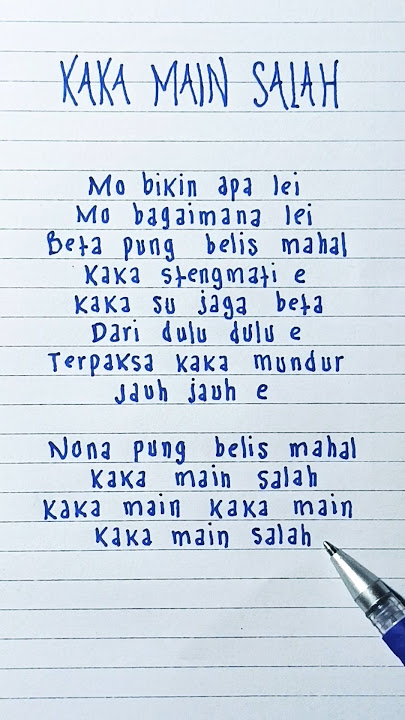 KAKA MAIN SALAH
Mo bikin apa lei
Mo bagaimana lei
Beta pung belis mahal
Kaka stengmati e
Kaka su jaga beta
Dari dulu dulu e
Terpaksa kaka mundur
Jauh jauh e
Nona pung belis mahal
Kaka main salah
Kaka main kaka main
Kaka main salah